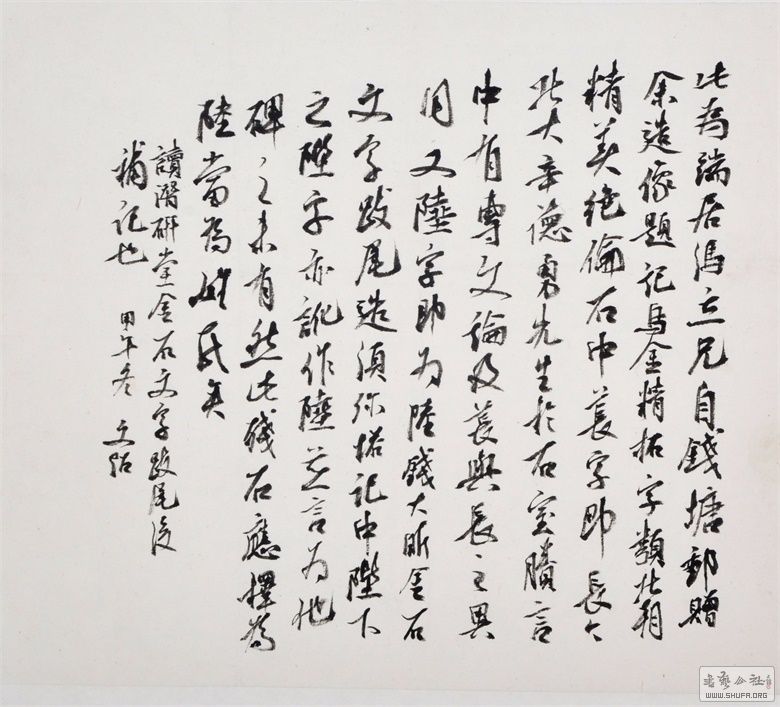 此為端居馮立兄自錢塘郵贈
余造像題記烏金精拓字類北朝
精美絕倫石中萇字即長今
北大辛德勇先生於石室賸言
中有專文論及萇與長之異
同又陸字即為陸錢大昕金石
文字跋尾造須彌塔記中陛下
之陛字亦訛作陸並言為他
碑之未有然此殘石應釋為
陸當為姓氏矣
讀潛研堂金石文字跋尾後
補記也 甲午冬 文
書藝公社
WWW.SHUFA.ORG